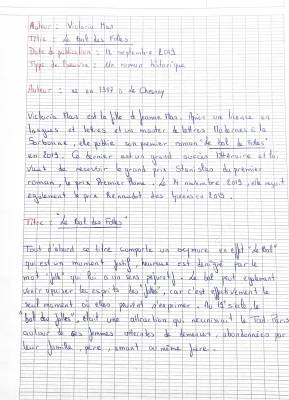 Auteur : Victoria Mas
Titre : Le Bal des Folles
Date de publication : 12 septembre 2019
Type de l'oeuvre : Un roman historique
Auteur : né en 1987 à Le Chesnay
Victoria Mas est la fille de Jeanne Mas. Après un license en
langues et lettres et un master de lettres Modernes à la
Sorbonne, elle publie son premier roman "le bal des folles"
en 2019. Ce dernier est un grand succès littéraire et lui
vaut de recevoir le grand prix Stanislas du premier
roman, le prix Première Plume. Le 14 novembre 2019, elle reçoit
également le prix Renaudot des lycéens 2019.
Titre : "Le Bal des Folles"
Tout d'abord se titre comporte un oxymore en effet "Le Bal"
qui est un moment festif, heureux est dénigré par le
mot "folle" qui lui a un sens péjoratif. Le bal peut également
venir apaiser les esprits des "folles", car c'est effectivement le
seul moment où elles peuvent s'exprimer. Au 19e siècle, le
"bal des folles", était une attraction qui réunissait le Tout Paris
autour de ces femmes atteintes de démence, abandonnées par
leur famille, père, amant ou même frère.